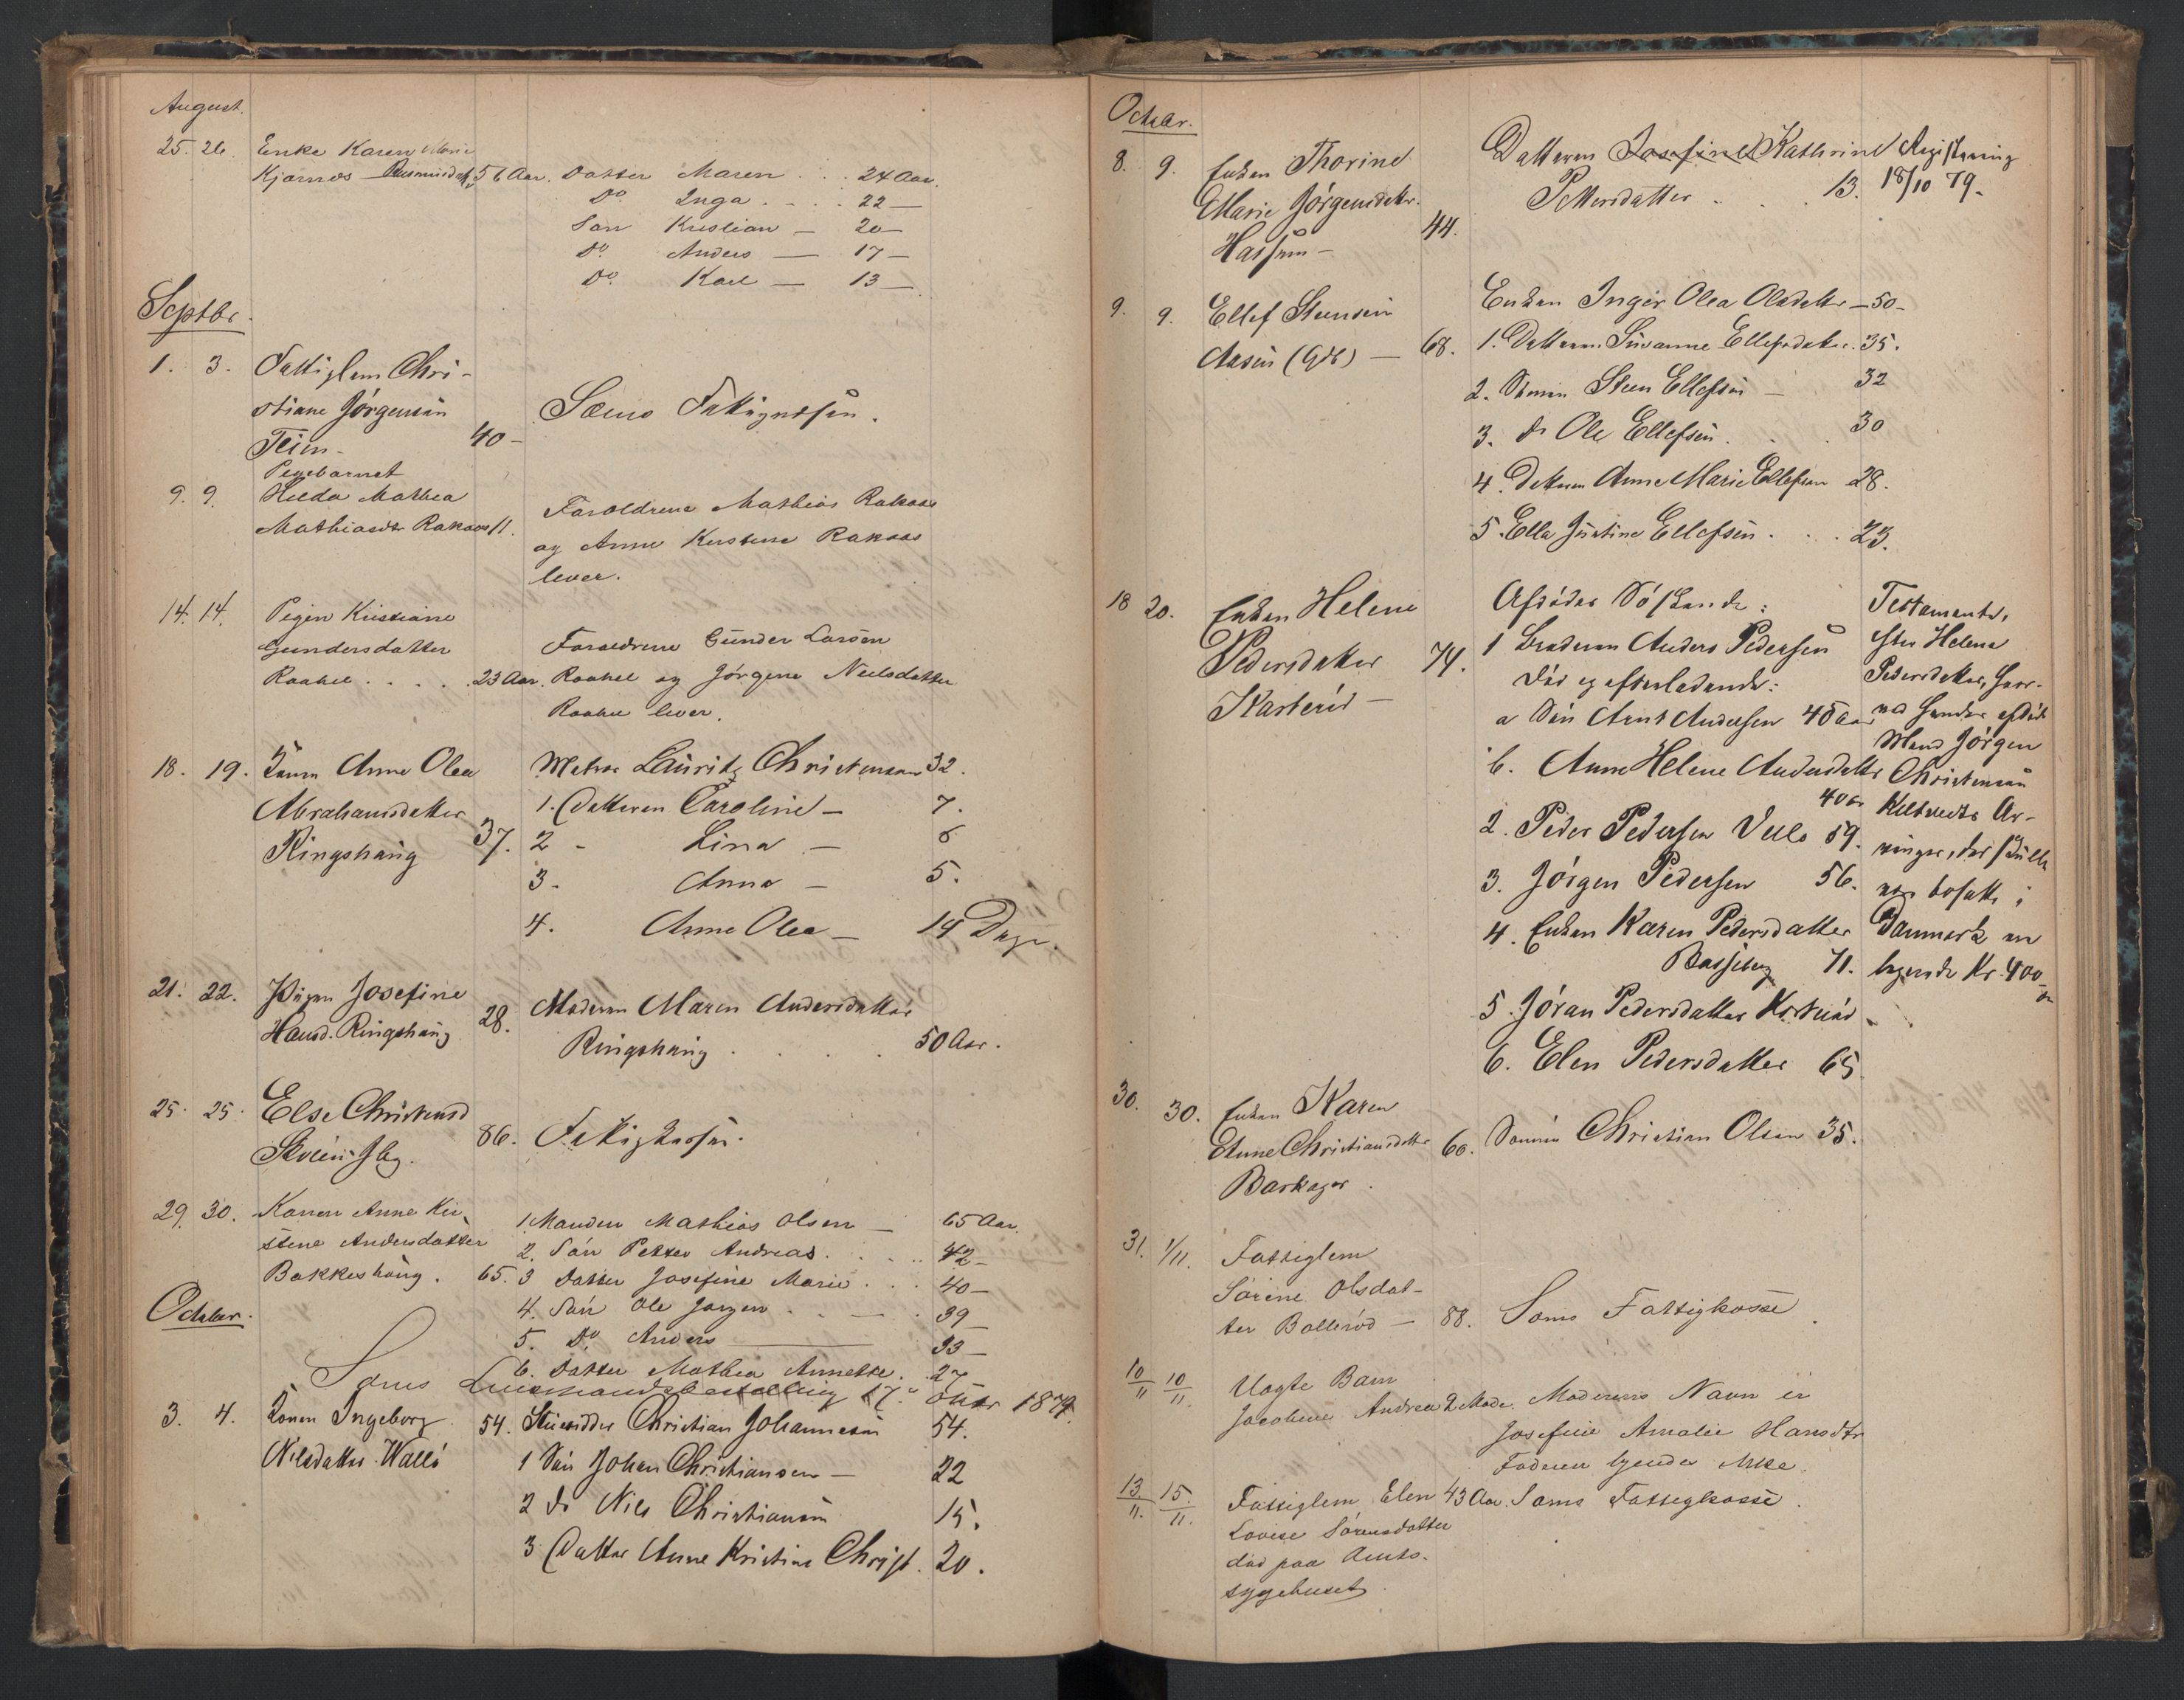 August.
25. 26. Enke Karen Marie
Kjærnes Rasmusdatr 56 Aar. Datter Maren . . . 24 Aar.
Do Inga . . . . 22 —
Søn Kristian — 20 —
Do. Anders — 17 —
Do. Karl — 13 —
Septbr.
1. 3. Fattiglem Chri-
stiane Jörgensen
Teien - 40 - Sems Fattigvæsen.
Pigebarnet
9. 9. Hilda Mathea
Mathiasdtr Rakaas 11. Forældrene Mathias Rakaas
og Anne Kirstine Rakaas
lever.
14. 14. Pigen Kristiane
Gundersdatter
Raakel . . . . 23 Aar. Forældrene Gunder Larsen
Raakel og Jørgine Neilsdatter
Raakel lever.
18. 19. Konen Anne Olea
Abrahamsdatter
Ringshaug 37. Matros Lauritz Christensen 32.
1. Datteren Caroline — 7.
2 - Lina — 6
3. Anna — 5.
4. Anne Olea — 14 Dage.
21. 22. Pigen Josefine
Hansd. Ringshaug 28. Moderen Maren Andersdatter
Ringshaug . . . . 50 Aar.
25. 25. Else Christensd
86. Fattigkassen.
29. 30. Konen Anne Kir-
stine Andersdatter
Bakkeshaug. 65. 1. Manden Mathias Olsen — 65 Aar.
2. Søn Petter Andreas. . . . 42 —
3 Datter Josefine Marie . . . 40 —
4. Søn Ole Jørgen . . — . 39 —
5. Do. Anders — 33 —
6. Datter Mathea Annette. . 27 —
October.
Sems Lensmandsbestilling 17. Oktbr 1879.
3. 4. Konen Ingeborg 54. Stuesidder Christian Johannesen 54.
Nilsdatter Wallö
1 Søn Johan Christiansen — 22
2 do Nils Christiansen 15.
3 Datter Anne Kristine Christ. 20.
Octobr.
8. 9. Enken Thorine
Marie Jörgensdatr.
Hassum — 44. Datteren Josefine Kathrine
Pettersdatter . . . 13. Registrering
18/10 79.
9. 9. Ellef Steensen
Aasen (Gdb) — 68. Enken Inger Olea Olsdatter — 50 -
1. Datteren Susanne Ellefsdatter. 35.
2. Sönnen Steen Ellefsen — 32
3. do Ole Ellefsen . . . 30
4. Datteren Anne Marie Ellefsen 28.
5. Ella Justine Ellefsen . . . 23.
18 20. Enken Helene
Pedersdatter 74.
Karterød —
Afdødes Søskende:
1 Broderen Anders Pedersen
død og efterladende:
a Søn Arnt Andersen 45 Aar
b. Anne Helene Andersdatter
40 Aar
2. Peder Pedersen Velle 59.
3. Jörgen Pedersen 56.
4. Enken Karen Pedersdatter
Basseberg 71.
5. Jöran Pedersdatter Karterød
6. Elen Pedersdatter 65
Testamente,
efter Helene
Pedersdatter, hvor-
ved hendes afdøde
Mand Jörgen
Christensen
Ar-
vinger, der skulle
være bosatte i
Danmark er
Kr. 400
30. 30. Enken Karen
Anne Christiansdatter 60. Sønnen Christian Olsen 35.
Barkager.
31. 1/11. Fattiglem
Sørine Olsdat-
ter Bollerød — 88. Sems Fattigkasse.
10/11 10/11. Uægte Barn
Jacobine Andrea 2 Mdr. Moderens Navn er
Josefine Amalie Hansdtr
Faderen kjendes ikke.
13./11. 15./11. Fattiglem Elen 43 Aar. Sems Fattigkasse.
Lovise Sørensdatter
død paa Amts-
sygehuset.